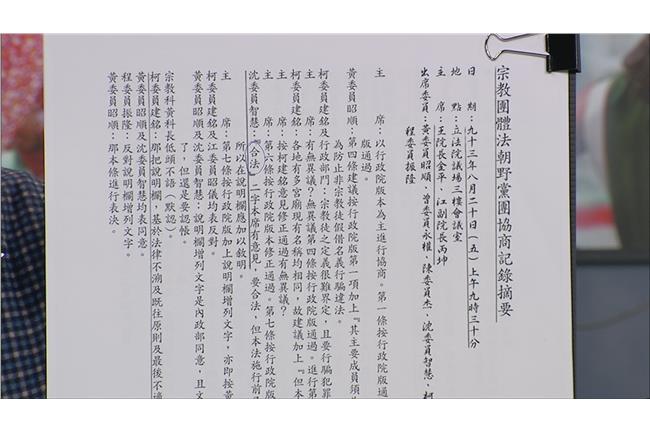 宗教團體法朝野黨團協商記錄摘要
日　期：九十三年八月二十日（五）上午九時三十分
地　點：立法院議場三樓會議室
主　席：王院長金平、江副院長丙坤
出席委員：黃委員昭順、曾委員永權、陳委員杰、沈委員智慧、柯
程委員振隆
主　席：以行政院版本為主進行協商。第一條按行政院版通
版通過。
黃委員昭順：第四條建議按行政院版第一項加上『其主要成員須
為防止非宗教徒假借名義行騙違法。
柯委員建銘及行政部門：宗教徒之定義很難界定，且要行騙犯罪
主　席：有無異議？無異議第四條按行政院版通過。進行第
柯委員建銘：各地有多宮廟現有名稱均相同，故建議加上『但本
主　席：按柯委員建銘意見修正通過有無異議？
主　席：第六條按行政院版本修正通過。第七條按行政院版
沈委員智慧：『合法』二字本席有意見，要合法，但本法施行前
所以在說明欄應加以敘明。
主　席：第七條按行政院版加上說明欄增列文字，亦即按黃
柯委員建銘及江委員昭儀均表反對。
黃委員昭順及沈委員智慧：說明欄增列文字是內政部同意，且文
了，但還是要認帳。
宗教科黃科長低頭不語（默認）。
柯委員建銘：那把說明欄，基於法律不溯及既往原則及最後不適
黃委員昭順及沈委員智慧均表同意。
程委員振隆：反對說明欄增列文字。
黃委員昭順：那本條進行表決。